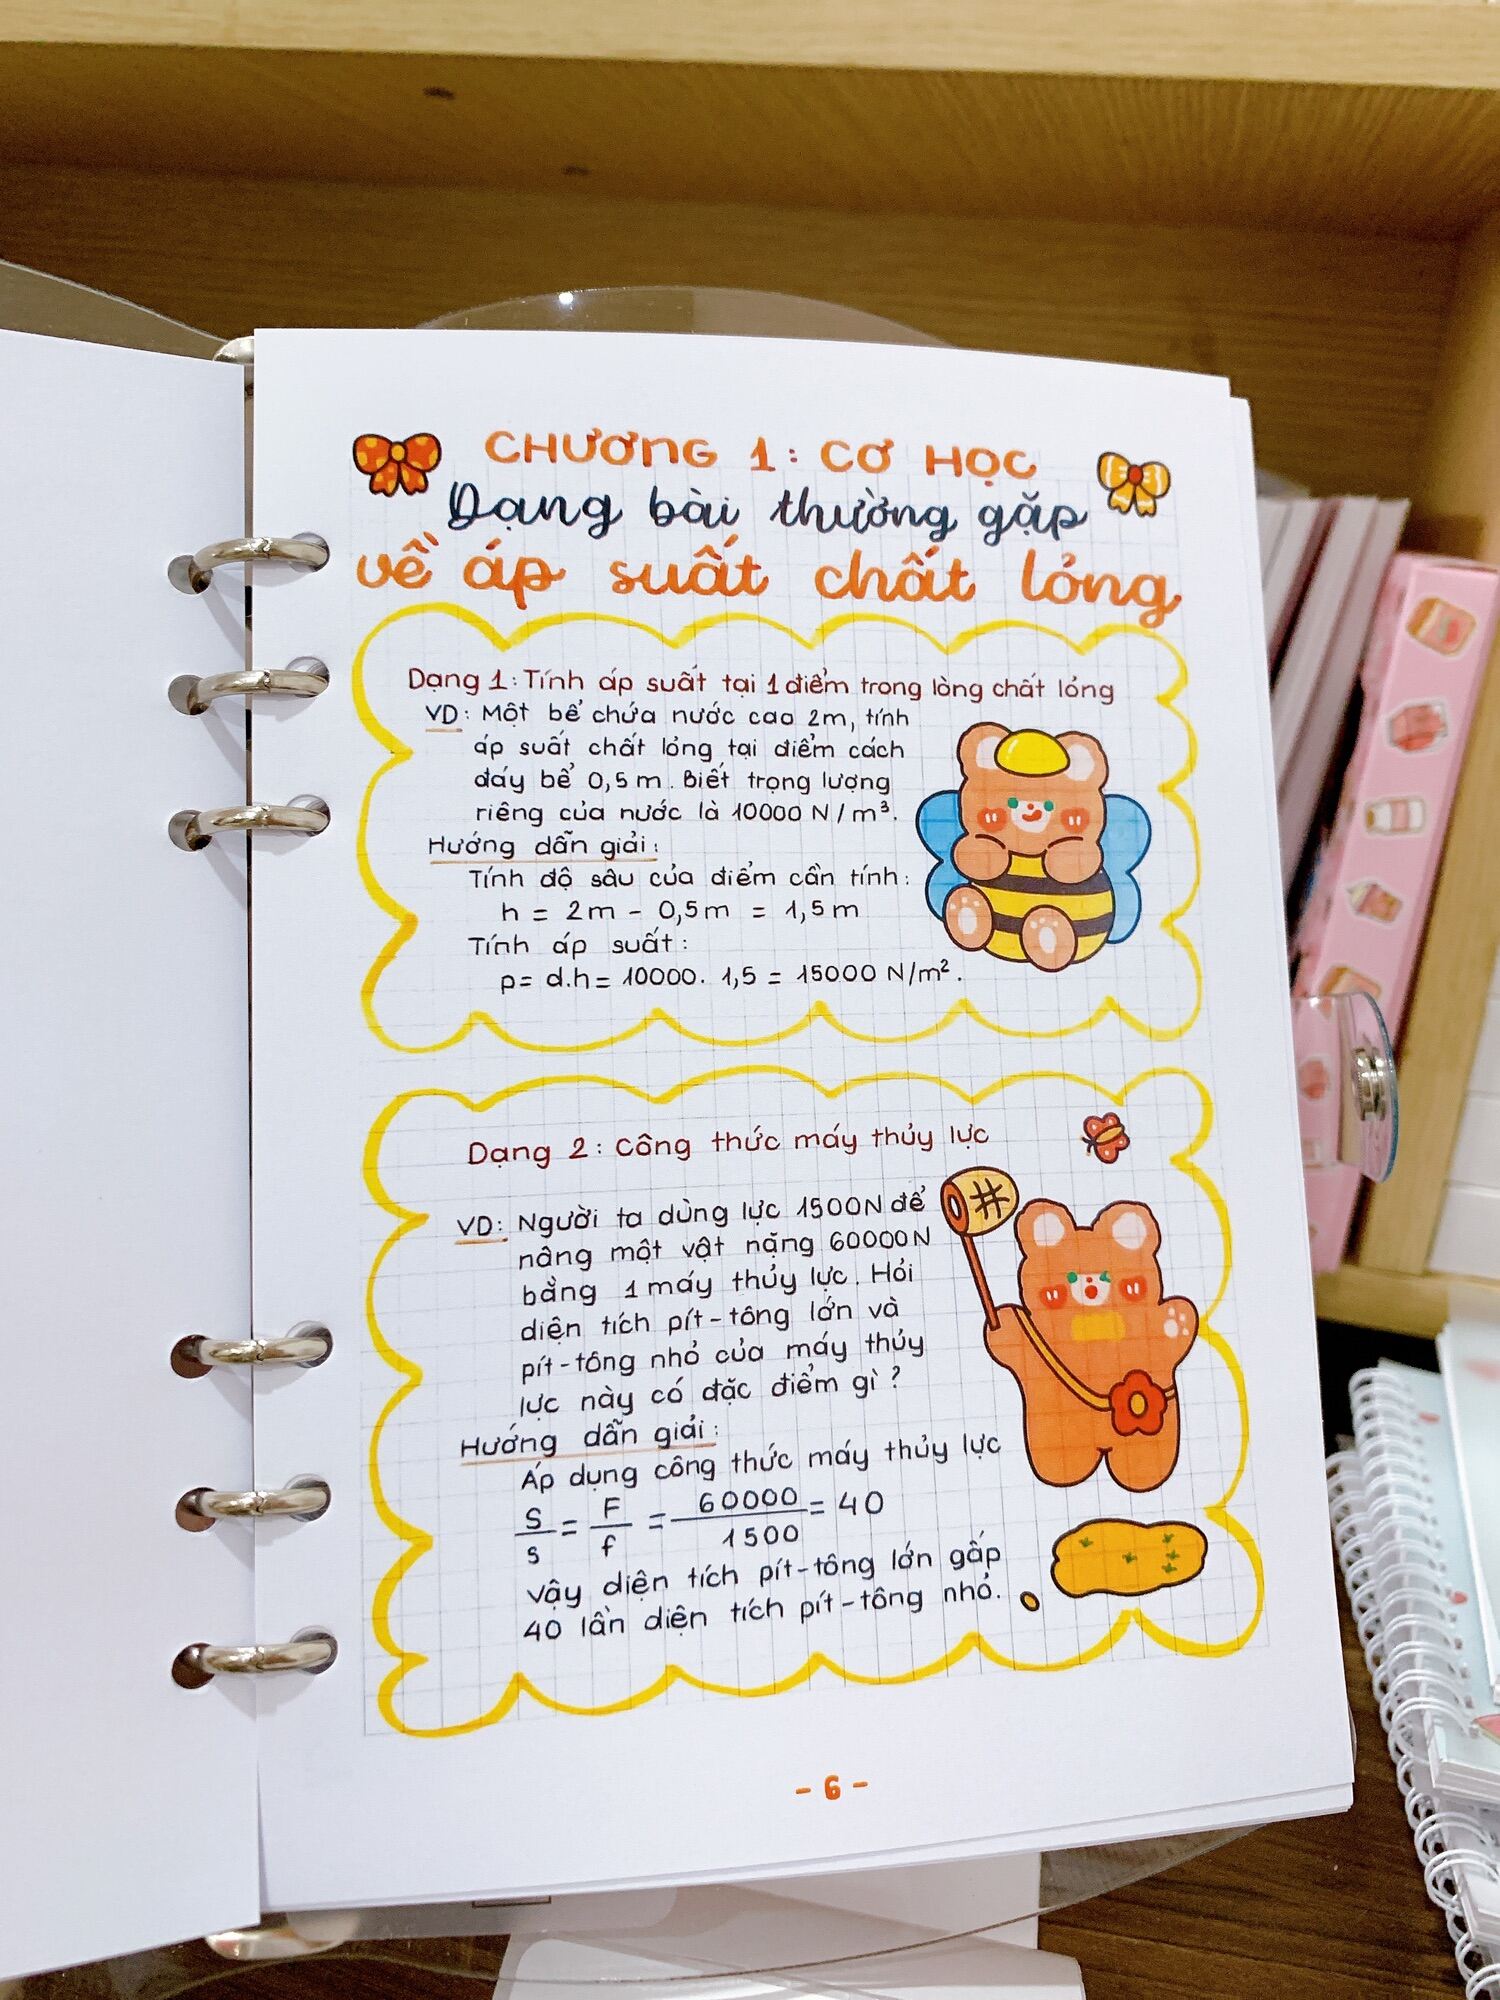 CHƯƠNG 1: CƠ HỌC
Dạng bài thường gặp
về áp suất chất lỏng
Dạng 1: Tính áp suất tại 1 điểm trong lòng chất lỏng
VD: Một bể chứa nước cao 2m, tính
áp suất chất lỏng tại điểm cách
đáy bể 0,5m. Biết trọng lượng
riêng của nước là 10000 N/m³.
Hướng dẫn giải:
Tính độ sâu của điểm cần tính:
h = 2m - 0,5m = 1,5m
Tính áp suất:
p = d.h = 10000. 1,5 = 15000 N/m².
Dạng 2: Công thức máy thủy lực
VD: Người ta dùng lực 1500N để
nâng một vật nặng 60000N
bằng 1 máy thủy lực. Hỏi
diện tích pít-tông lớn và
pít-tông nhỏ của máy thủy
lực này có đặc điểm gì?
Hướng dẫn giải:
Áp dụng công thức máy thủy lực
S/s = F/f = 60000/1500 = 40
Vậy diện tích pít-tông lớn gấp
40 lần diện tích pít-tông nhỏ.
- 6 -